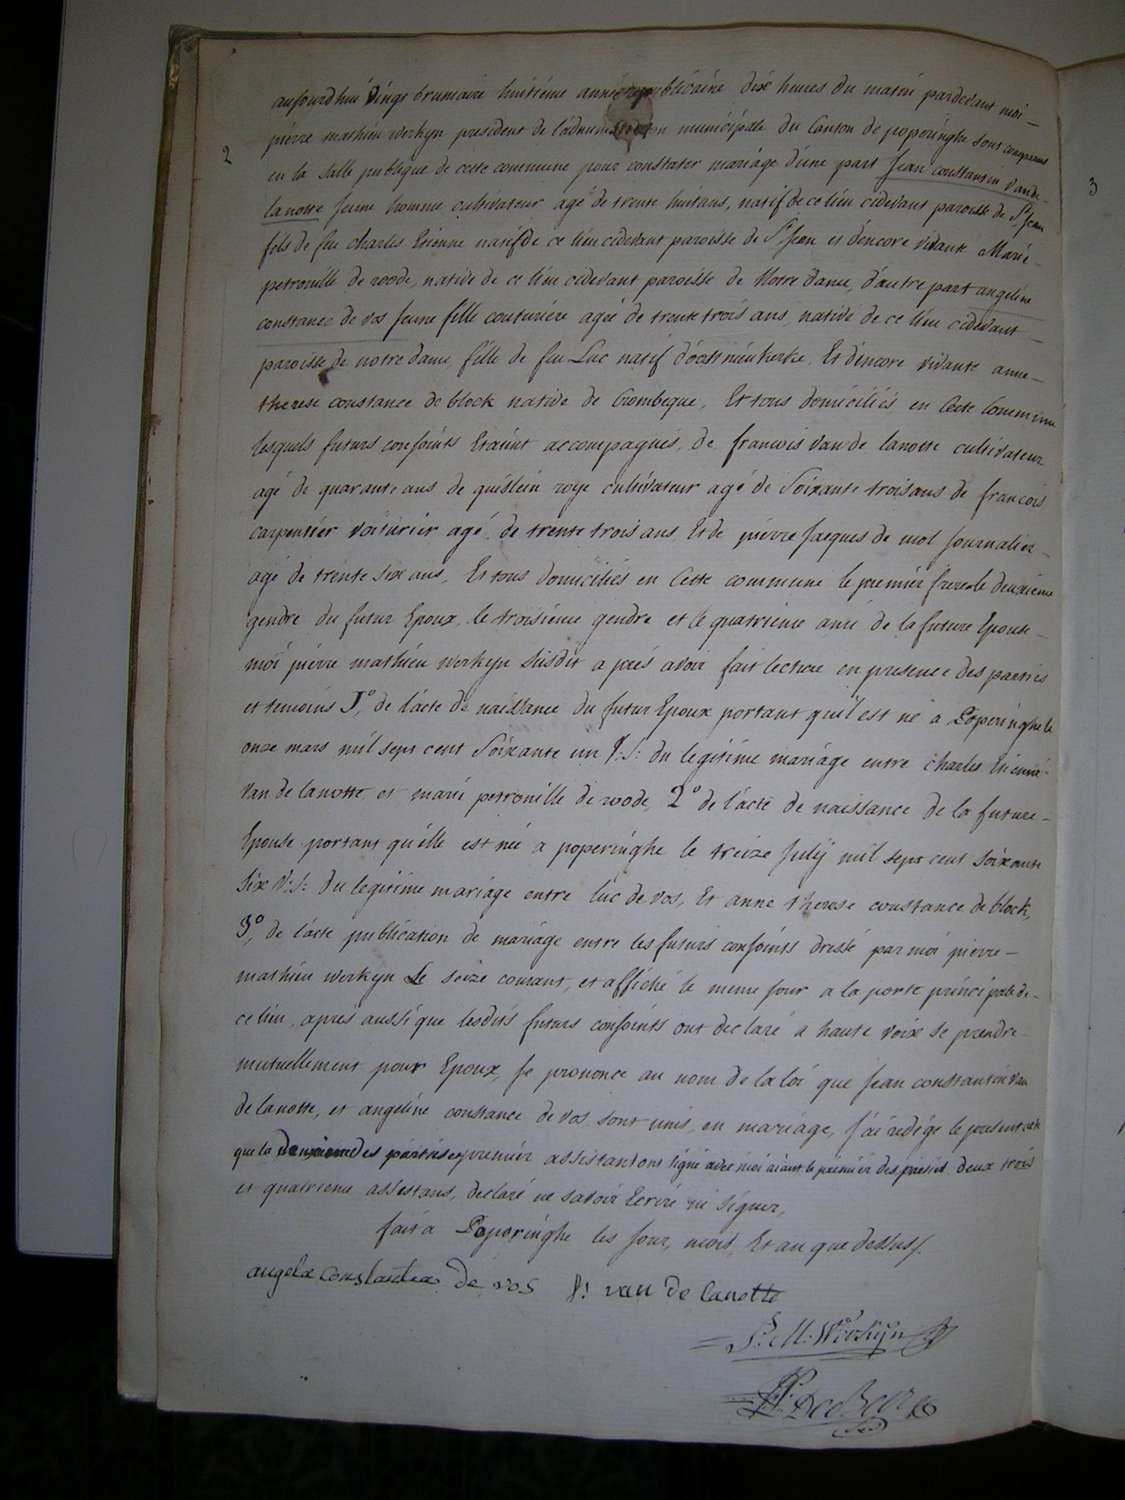 2
aujourd'hui vingt brumaire huitiéme année republicaine dix heures du matin pardevant moi –
pierre mathieu werkyn president de l'administration municipale du Canton de poperinghe sont comparus
en la salle publique de cette commune pour constater mariage d'une part Jean constantin vande
lanotte jeune homme cultivateur agé de trente huit ans, natif de ce lieu cidevant paroisse de St Jean
fils de feu charles Etienne natif de ce lieu cidevant paroisse de St Jean et d'encore vivante Marie –
petronille de roode, native de ce lieu cidevant paroisse de Notre Dame, d'autre part angeline
constance de vos jeune fille couturiére agée de trente trois ans, native de ce lieu cidevant –
paroisse de notre dame, fille de feu Luc natif d'oostnieukerke, Et d'encore vivante anne –
therese constance de block native de Crombeque, Et tous domiciliés en Cette Commune
lesquels futurs conjoints Etaint accompagnés, de francois van de lanotte cultivateur
agé de quarante ans de guislein roye cultivateur agé de Soixante trois ans de francois
carpentier voiturier agé de trente trois ans, Et de pierre Jacques de mol Journalier –
agé de trente six ans, Et tous domiciliés en Cette commune le premier frere le deuxieme
gendre du futur Epoux, le troisiéme gendre et le quatrieme ami de la future Epouse –
moi pierre mathieu werkyn susdit a prés avoir fait lecture en presence des parties
et temoins 1º, de l'acte de naissance du futur Epoux portant qu'il est né a Poperinghe le
onze mars mil sept cent Soixante un V: S: du legitime mariage entre charles Etienne –
van de lanotte et marie petronille de roode, 2º de l'acte de naissance de la future –
Epouse portant qu'elle est née a poperinghe le treize July mil sept cent soixante
six V: S: du legitime mariage entre luc de vos, Et anne therese constance de block,
3º, de l'acte publication de mariage entre les futurs conjoints dressé par moi pierre –
mathieu werkyn Le seize courant, et affiché le meme jour a la porte principale de –
ce lieu, aprés aussi que lesdits futurs conjoints ont declaré a haute voix se prendre –
mutuellement pour Epoux, Je prononce au nom de la loi que Jean constantin van
de lanotte, et angeline constance de vos sont unis, en mariage, J'ai redigé le present acte
que la deuxieme des parties et premier assistant ont signé avec moi aiant le premier des parties deux trois
et quatrieme assistans, declaré ne savoir Ecrire ni signer,
fait a Poperinghe les jour, mois, Et an que dessus /.
angela constantia de vos f: van de lanotte
P: M: Werkyn
De Beir
3